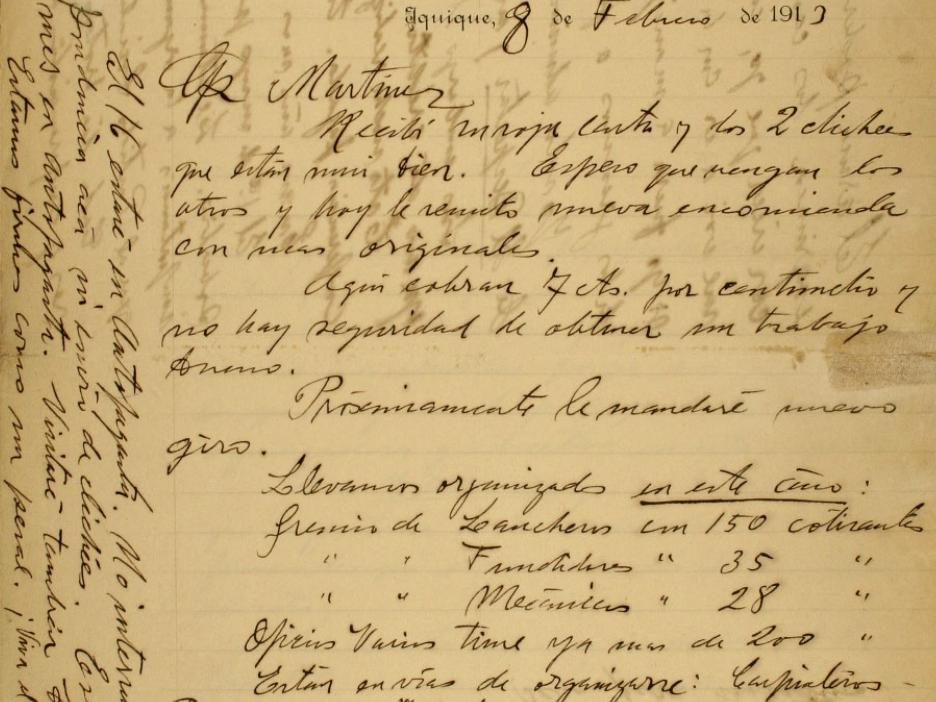 Iquique, 8 de Febrero de 1913
Martinez
Recibí su roja carta y los 2 clichees
que están mui bien. Espero que vengan los
otros y hoy le remito nueva encomienda
con mas originales.
Aquí cobran 7 cts. por centimetro y
no hay seguridad de obtener un trabajo
bueno.
Próximamente le mandaré nuevo
giro.
Llevamos organizados en este año:
Gremio de Lancheros con 150 cotizantes
" " Fundidores " 35 "
" " Mecánicos " 28 "
Oficios Varios tiene ya mas de 200 "
Están en vías de organizarse: Carpinteros -
El 16 estaré en Antofagasta. No interru
acá mi envío de clichées. En
mes en Antofagasta. Visitaré también
Estamos firmes como un peral. ¡Viva el